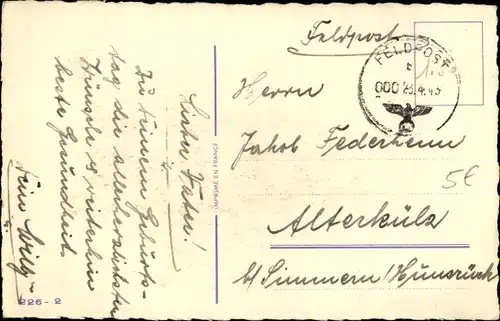 Feldpost
FELDPOST
b
000 23.4.43
Herrn
Jakob Federhenn
Alterkülz
b/ Simmern/Hunsrück
5€
IMPRIMÉ EN FRANCE
Lieber Vater!
Zu deinem Geburts-
tag die allerherzlichsten
Wünsche & weiterhin
beste Gesundheit.
Dein Willy
226-2